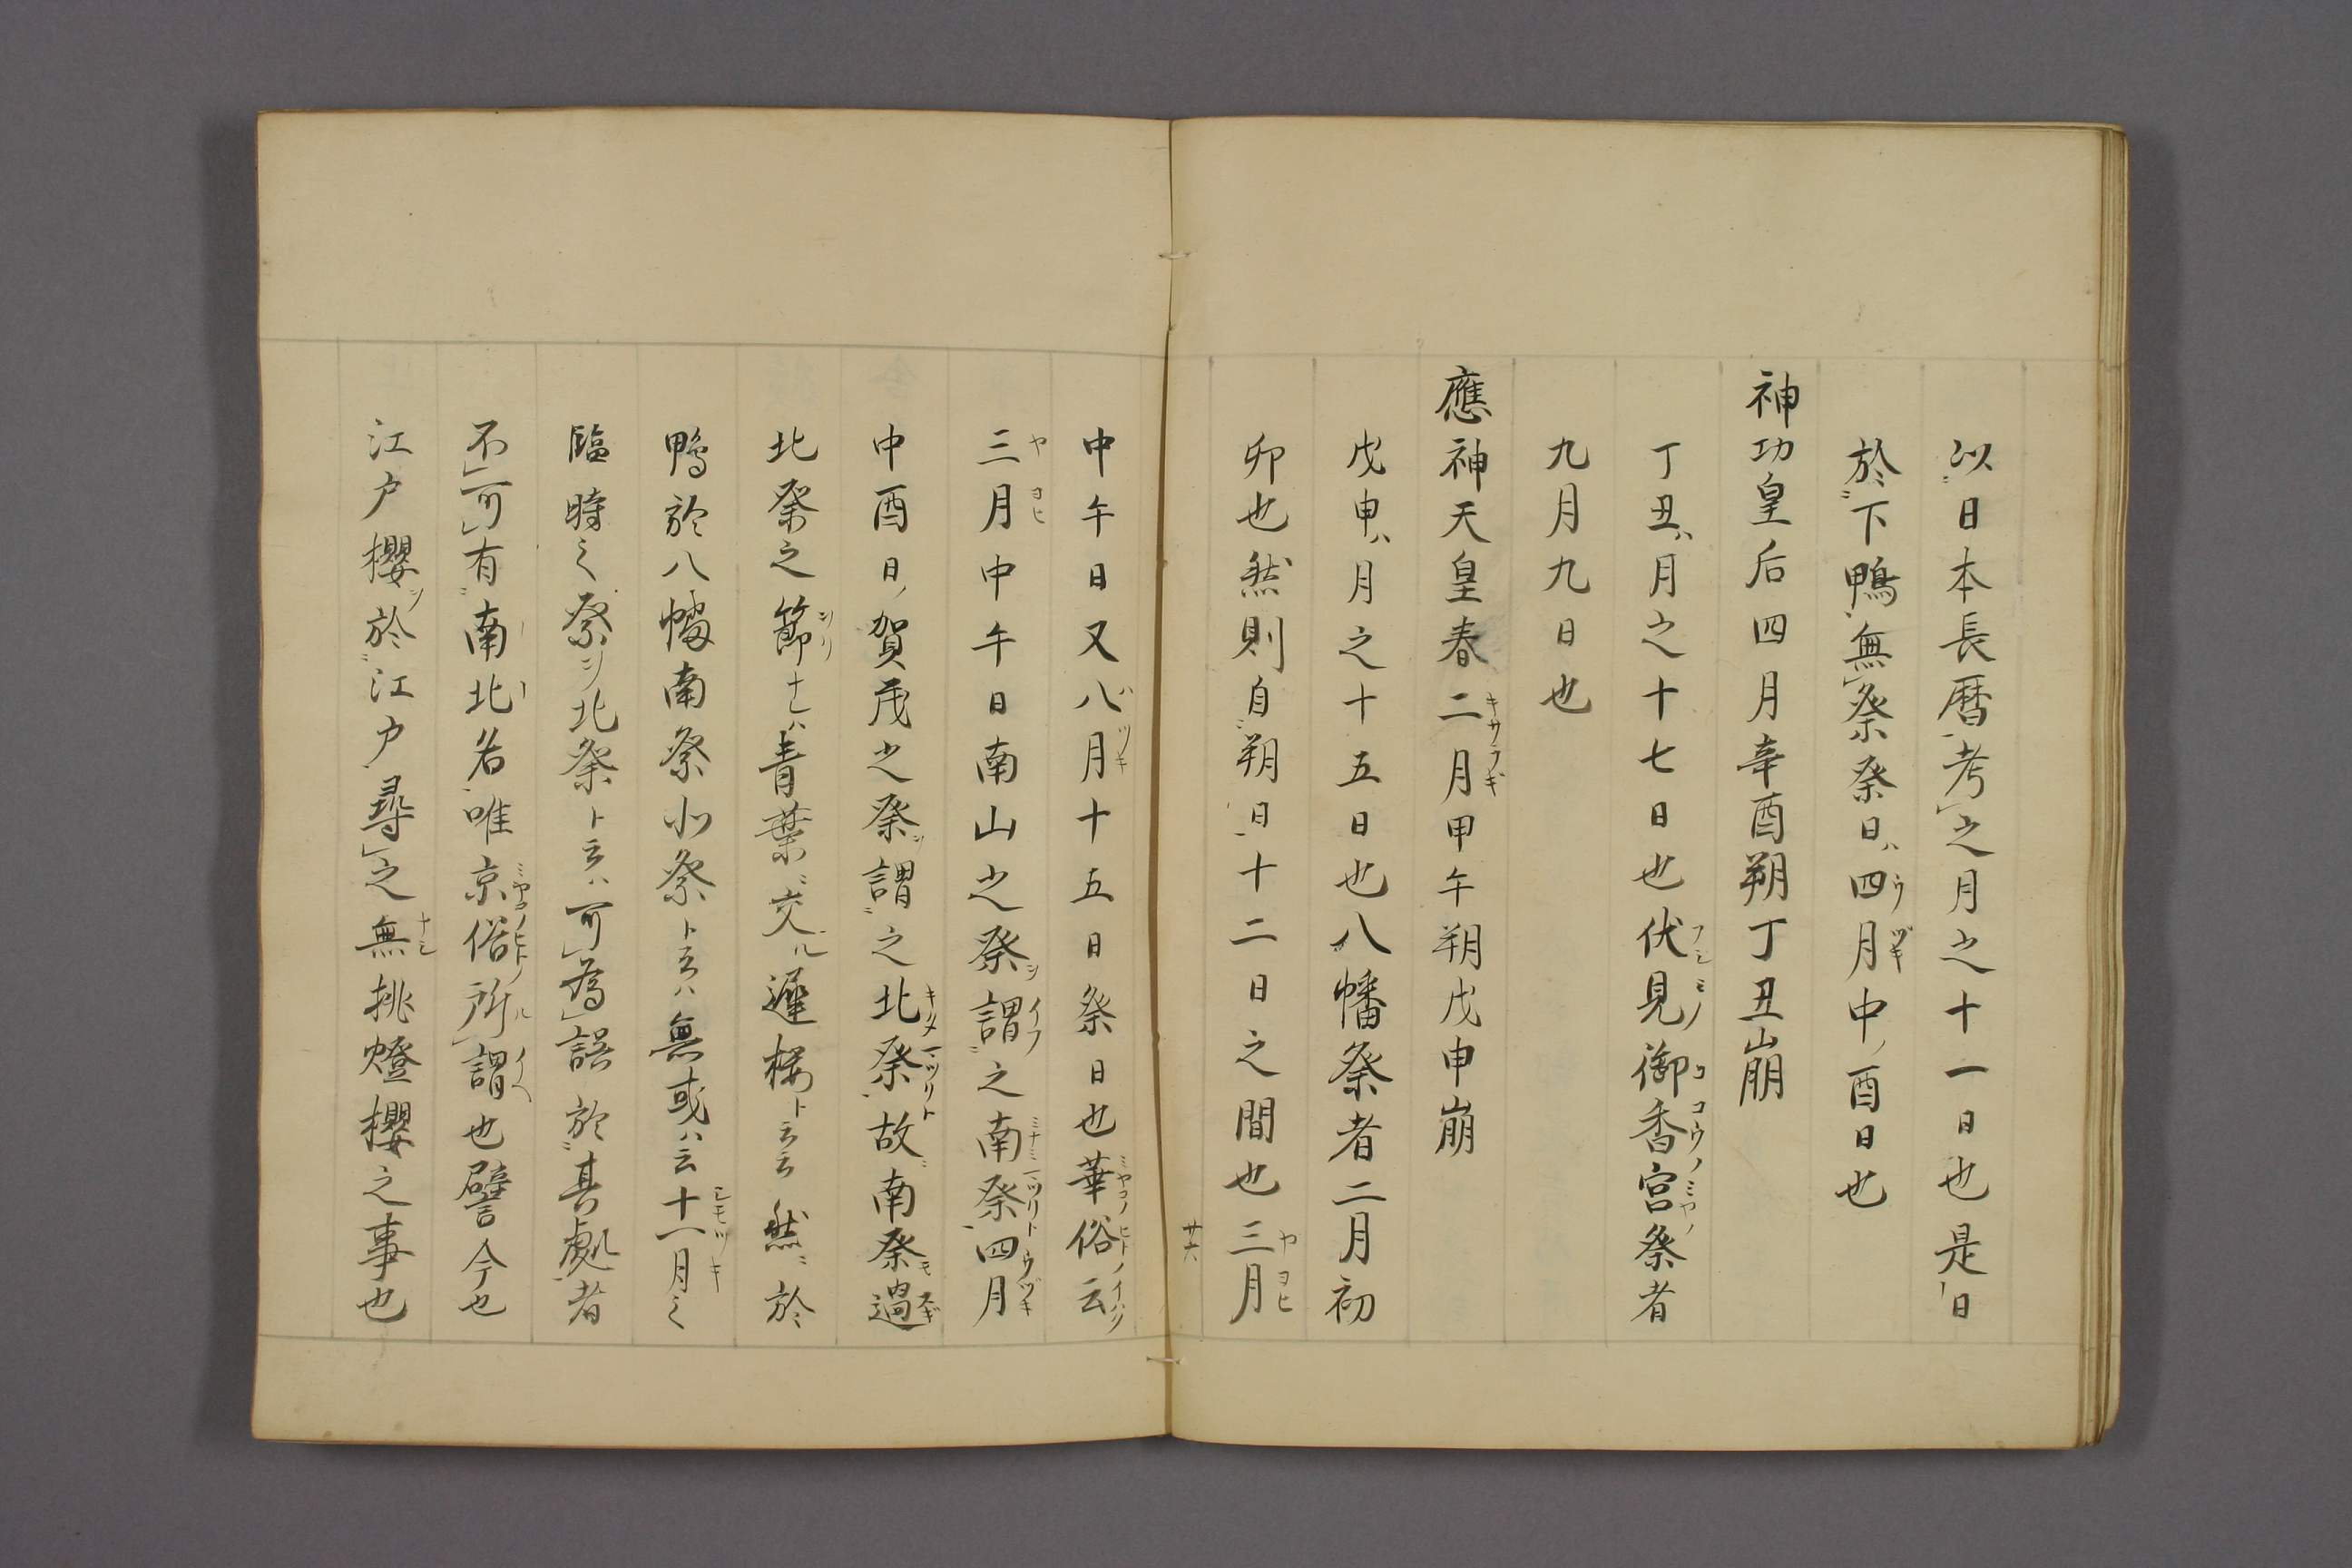 以日本長暦考之月之十一日也是日
於下鴨無祭祭日ハ四月中ノ酉日也
神功皇后四月辛酉朔丁丑崩
丁丑ハ月之十七日也伏見御香宮祭者
九月九日也
應神天皇春二月甲午朔戊申崩
戊申ハ月之十五日也八幡祭者二月初
卯也然則自朔日十二日之間也三月
廿六
中午日又八月十五日祭日也華俗云
三月中午日南山之祭謂之南祭四月
中酉日ノ賀茂之祭謂之北祭故南祭過
北祭之節ナレハ青葉交ル遲桜ト云云然於
鴨於八幡南祭北祭ト云ハ無或ハ云十一月之
臨時之祭ヲ北祭ト云ハ可為誤於其處者
不可有南北名唯京俗所謂也譬今也
江戸櫻ヲ於江戸尋之無挑燈櫻之事也